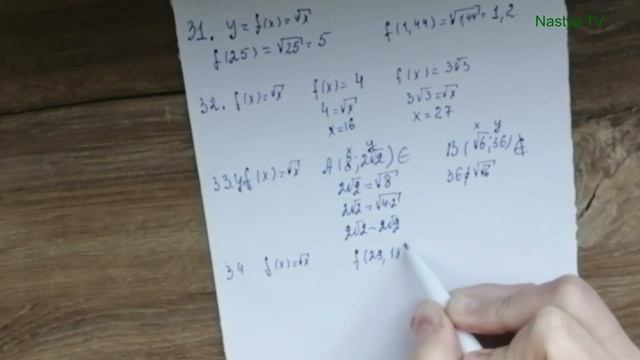 Nastya TV
31. y = f(x) = √x
f(25) = √25 = 5
f(1,44) = √1,44 = 1,2
32. f(x) = √x
f(x) = 4
4 = √x
x = 16
f(x) = 3√3
3√3 = √x
x = 27
33. y f(x) = √x
x y
A(8; 2√2) ∈
2√2 = √8
2√2 = √4·2
2√2 = 2√2
x y
B(√6; 36) ∉
36 ≠
34 f(x) = √x
f(29, 18